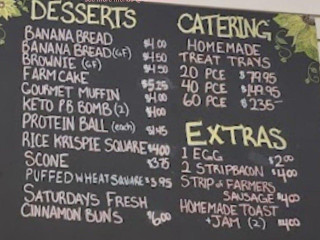 DESSERTS
BANANA BREAD $4.00
BANANA BREAD (GF) $4.50
BROWNIE (GF) $4.50
FARM CAKE $5.25
GOURMET MUFFIN $4.00
KETO PB BOMB (2) $4.00
PROTEIN BALL (each) $1.45
RICE KRISPIE SQUARE $4.00
SCONE $3.75
PUFFED WHEAT SQUARE $3.95
SATURDAYS FRESH
CINNAMON BUNS $6.00
CATERING
HOMEMADE
TREAT TRAYS
20 PCE $79.95
40 PCE $149.95
60 PCE $235—
EXTRAS
1 EGG $2.00
2 STRIP BACON $4.00
STRIP of FARMERS
SAUSAGE $4.00
HOMEMADE TOAST
+ JAM (2) $4.00